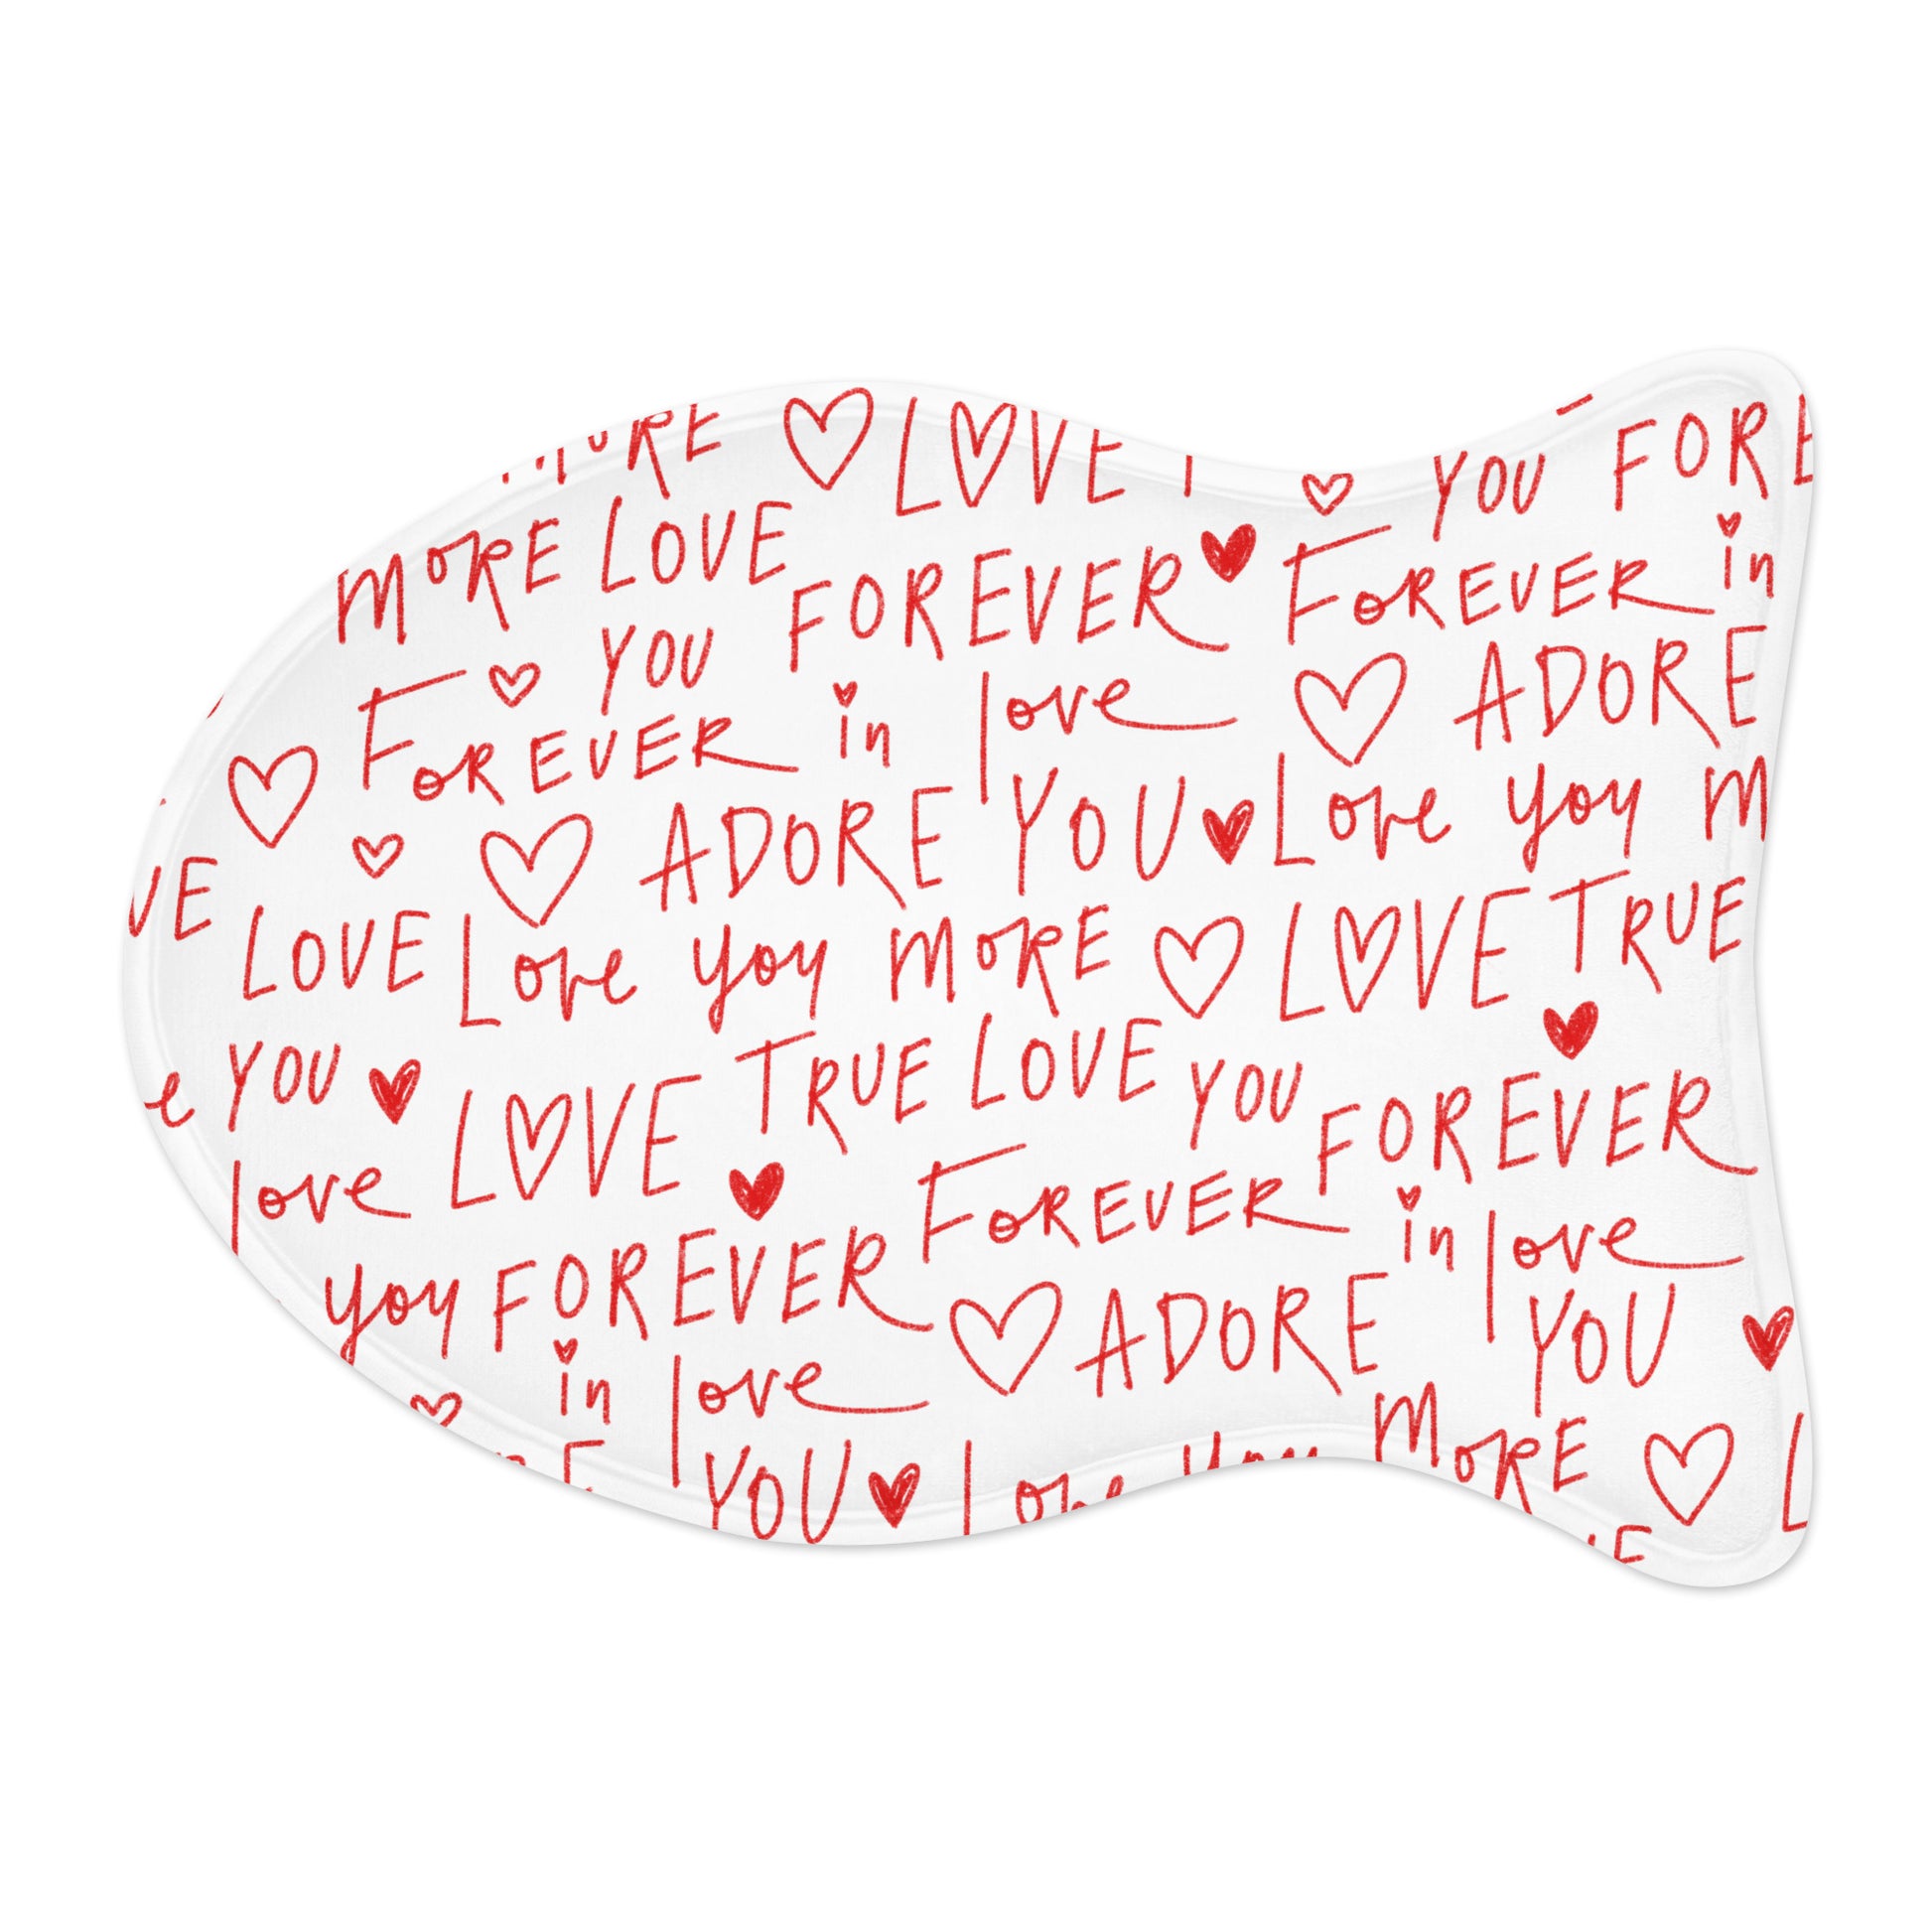 MORE LOVE
YOU FORE
MORE LOVE FOREVER FOREVER in
YOU
FOREVER in love ADORE
ADORE YOU Love you M
LOVE Love you MORE LOVE TRUE
YOU LOVE TRUE LOVE YOU FOREVER
love FOREVER in love
you FOREVER ADORE YOU
in love MORE
YOU Love you